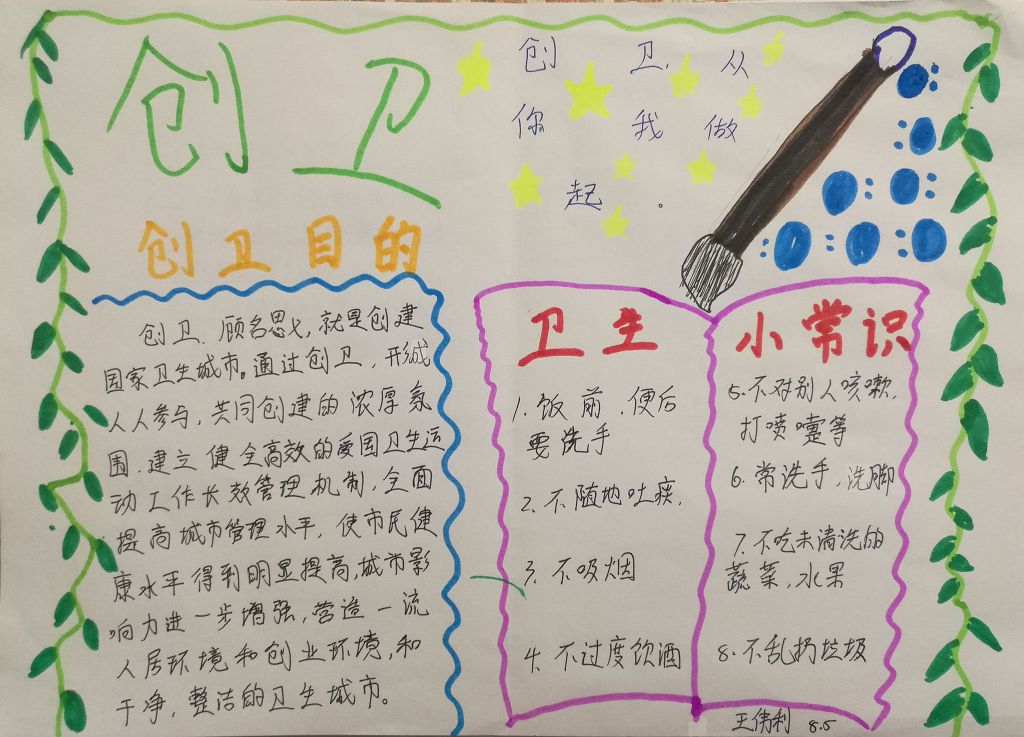 创卫
创 卫,从
你 我 做
起。
创卫目的
创卫,顾名思义,就是创建
国家卫生城市。通过创卫,形成
人人参与,共同创建的浓厚氛
围,建立健全高效的爱国卫生运
动工作长效管理机制,全面
提高城市管理水平,使市民健
康水平得到明显提高,城市影
响力进一步增强,营造一流
人居环境和创业环境,和
干净,整洁的卫生城市。
卫生
1.饭前、便后
要洗手
2.不随地吐痰,
3.不吸烟
4.不过度饮酒
小常识
5.不对别人咳嗽,
打喷嚏等
6.常洗手,洗脚
7.不吃未清洗的
蔬菜,水果
8.不乱扔垃圾
王伟利 8.5